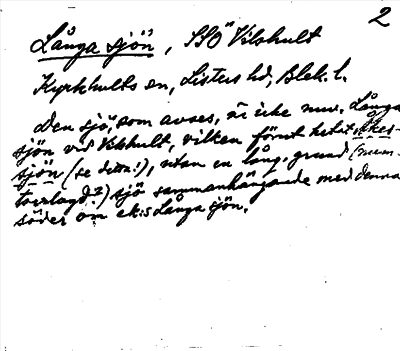 2
Långa sjön, SSÖ Vilshult
Kyrkhults sn, Listers hd, Blek. l.
Den sjö, som avses, är icke nuv. Långa
sjön vid Vilshult, vilken förut hetat Åkes-
sjön (se detta!), utan en lång, grund (num.
torrlagd?) sjö sammanhängande med denna
söder om ek:s Långa sjön.